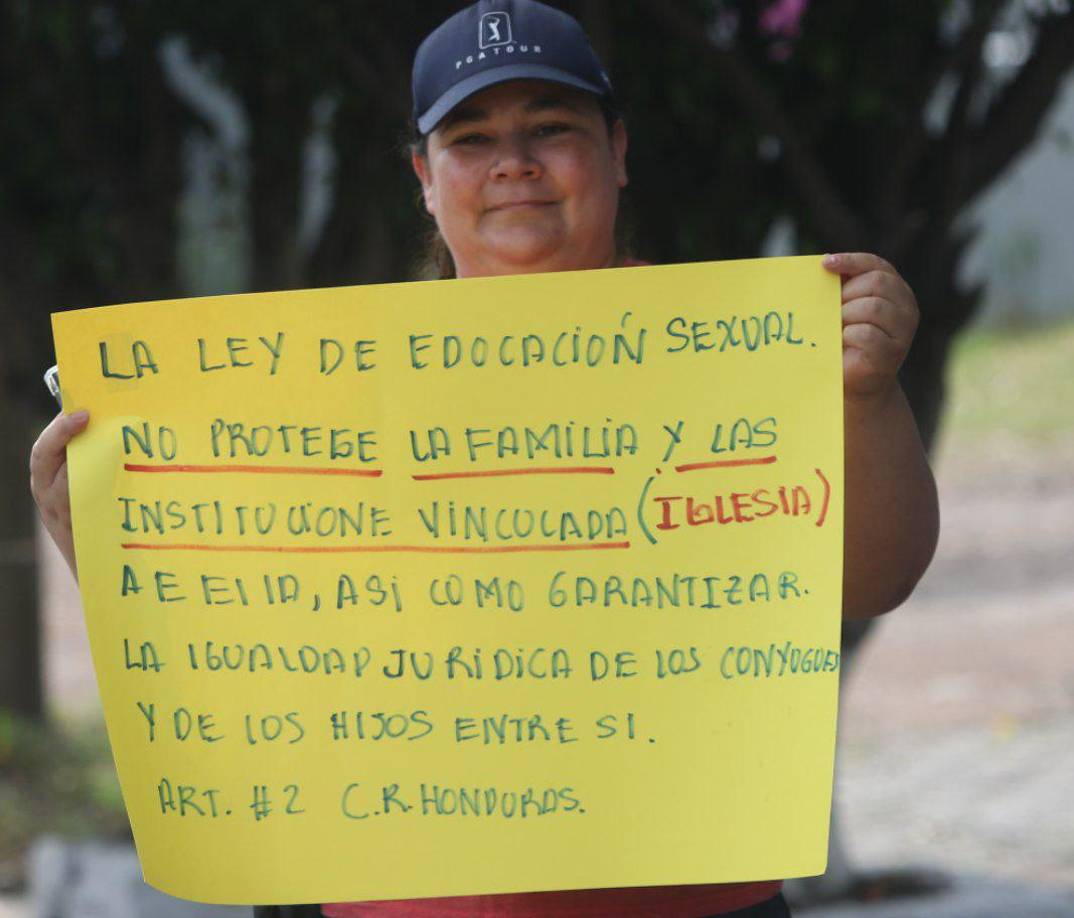 PGA TOUR
LA LEY DE EDOCACIÓN SEXUAL.
NO PROTEGE LA FAMILIA Y LAS
INSTITUCIONE VINCULADA (IGLESIA)
A E EllA, ASi COMO GARANTIZAR.
LA IGUALDAD JURIDICA DE LOS CONYOGUES
Y DE LOS HIJOS ENTRE SI.
ART. #2 C.R. HONDURAS.